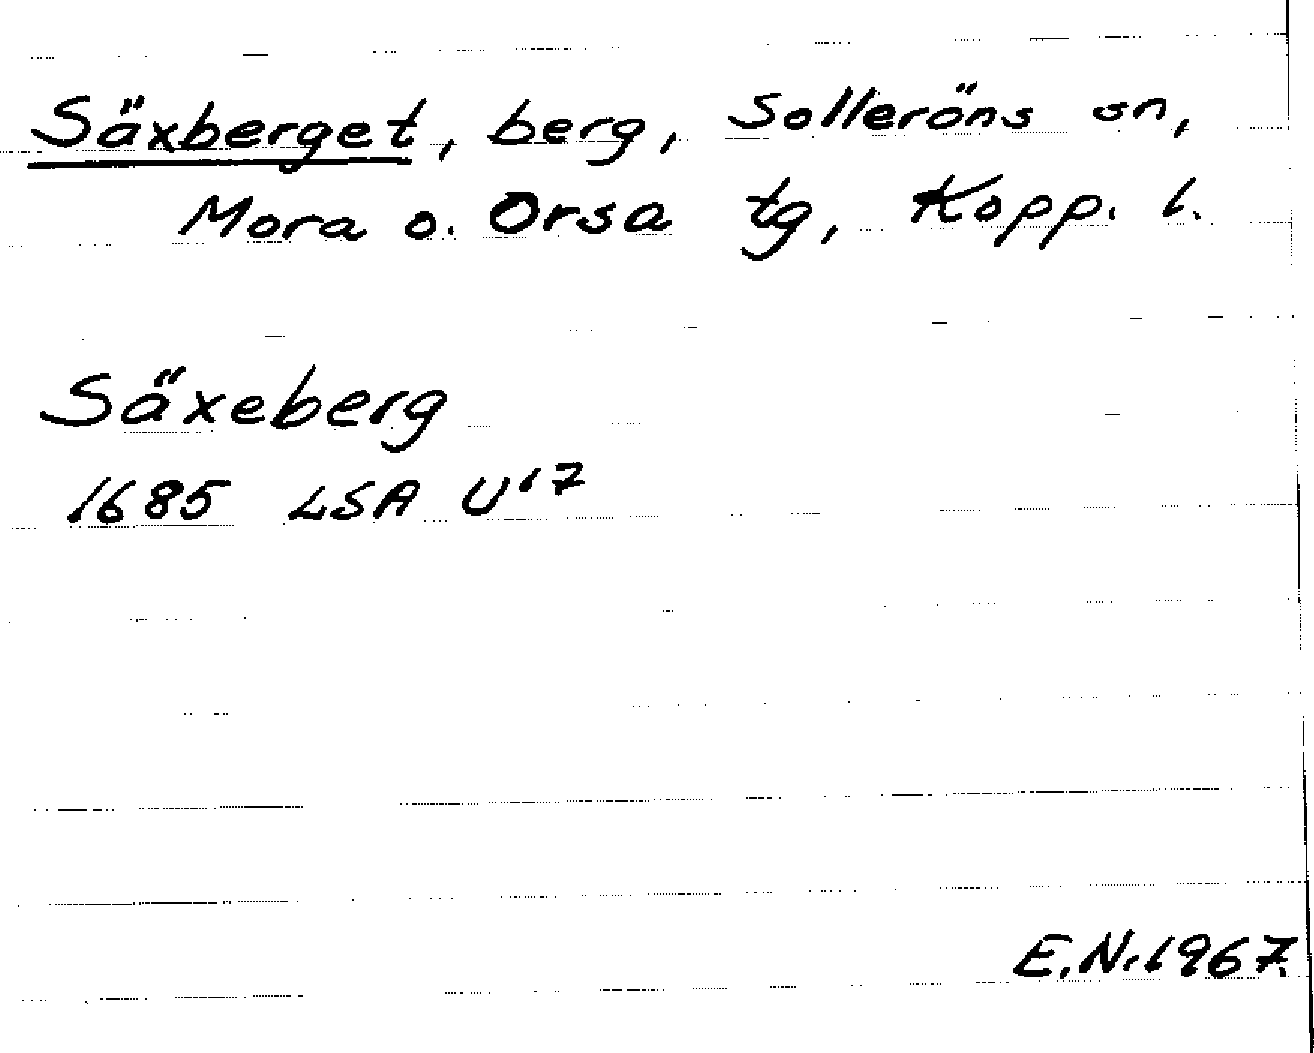 Säxberget, berg, Solleröns sn,
Mora o. Orsa tg, Kopp. l.
Säxeberg
1685 LSA U¹⁷
E.N. 1967.